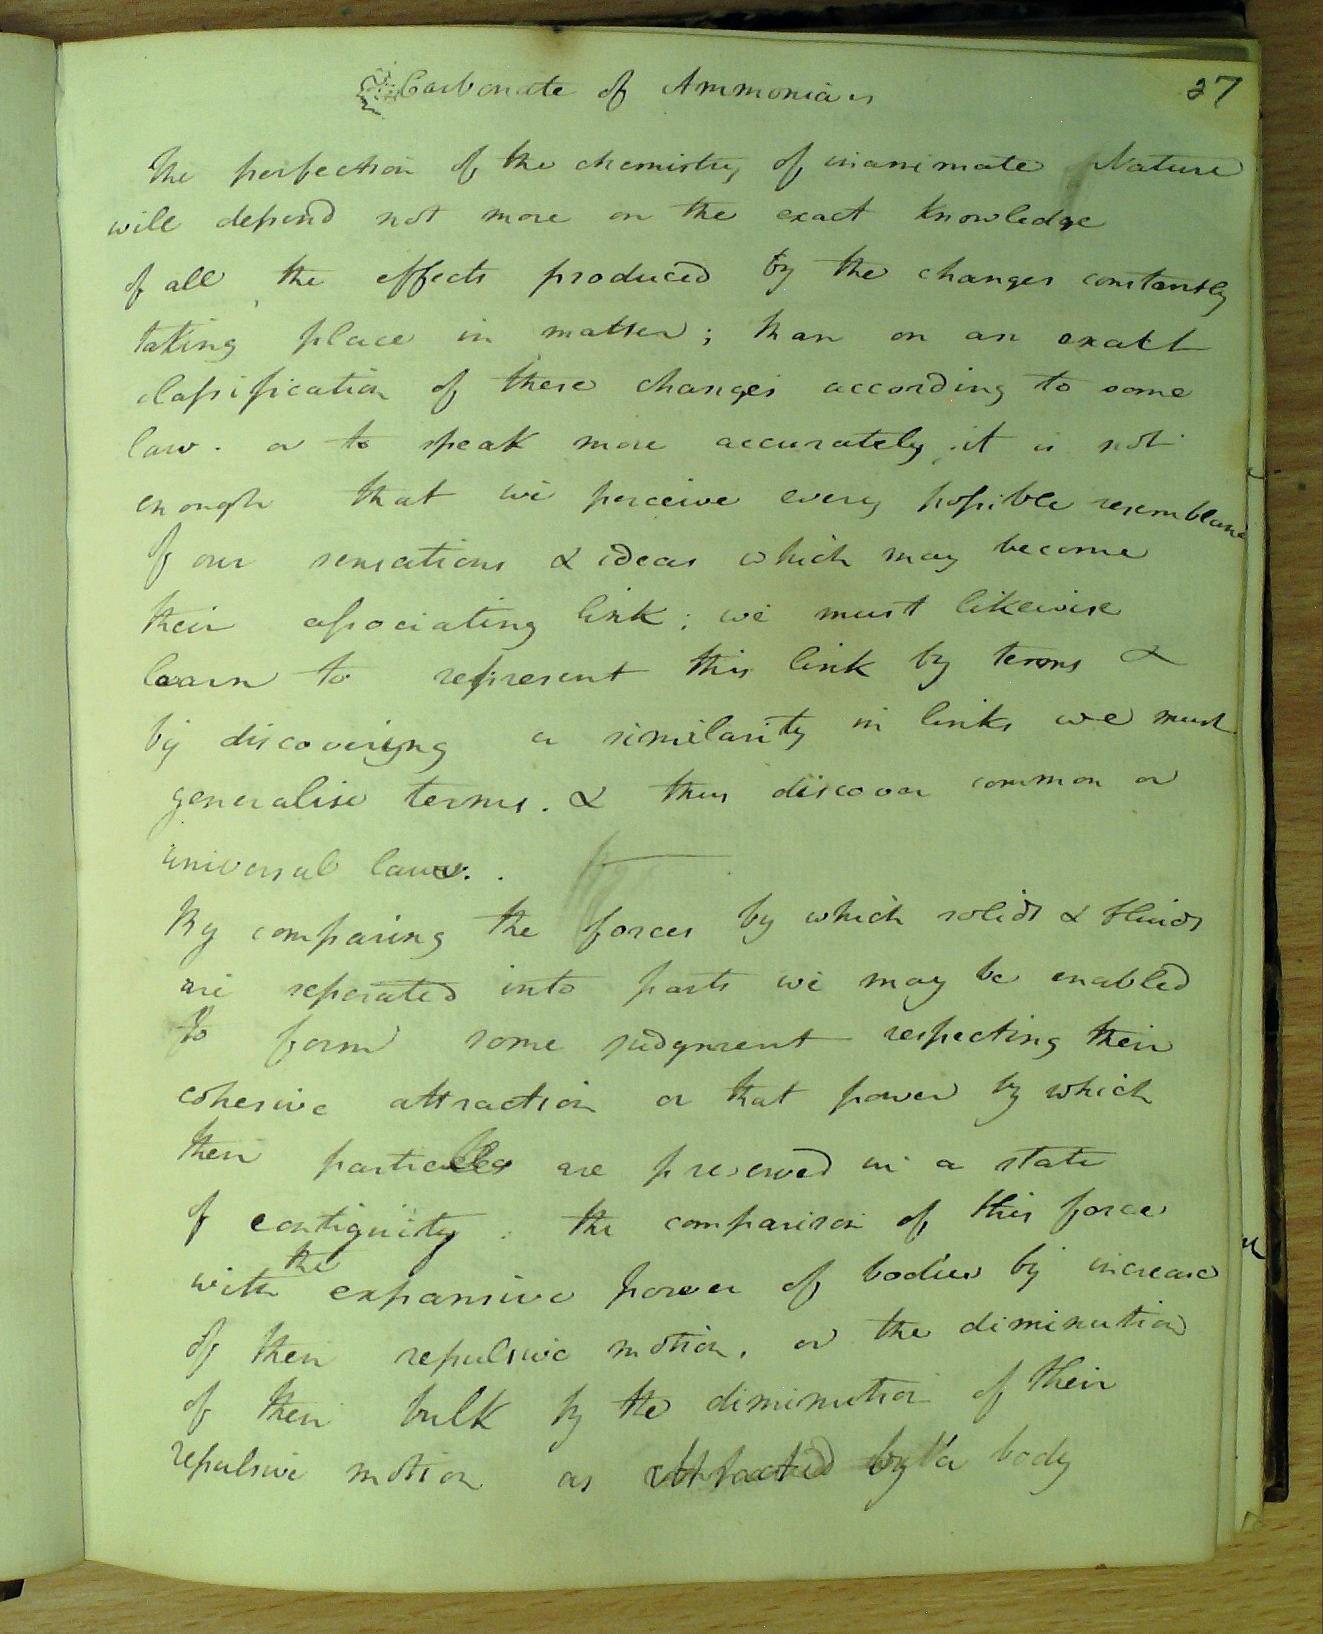 Carbonate of Ammonia is
27
The perfection of the chemistry of inanimate Nature
will depend not more on the exact knowledge
of all the effects produced by the changes constantly
taking place in matter; than on an exact
classification of these changes according to some
law. or to speak more accurately, it is not
enough that we perceive every possible resemblance
of our sensations & ideas which may become
their associating link; we must likewise
learn to represent this link by terms &
by discovering a similarity in links we must
generalise terms. & thus discover common or
universal laws.
By comparing the forces by which solids & fluids
are seperated into parts we may be enabled
to form some judgment respecting their
cohesive attraction or that power by which
their particles are preserved in a state
of contiguity. the comparison of this force
the
with expansive power of bodies by increase
of their repulsive motion, or the diminution
of their bulk by the diminution of their
repulsive motion as by a body